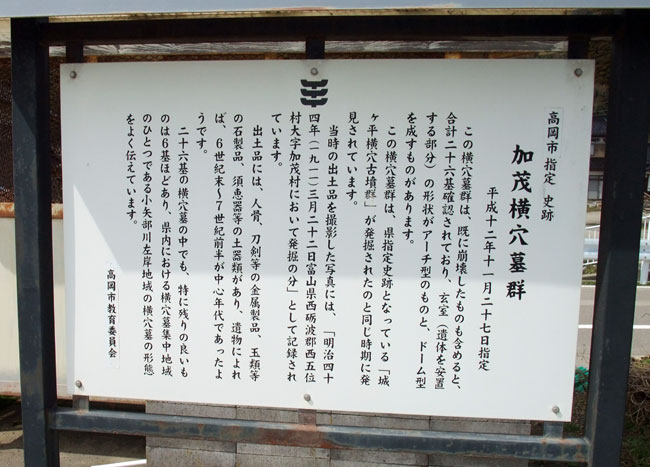 高岡市指定 史跡
加茂横穴墓群
平成十二年十一月二十七日指定
この横穴墓群は、既に崩壊したものも含めると、
合計二十六基確認されており、玄室（遺体を安置
する部分）の形状がアーチ型のものと、ドーム型
を成すものがあります。
この横穴墓群は、県指定史跡となっている「城
ヶ平横穴古墳群」が発掘されたのと同じ時期に発
見されています。
当時の出土品を撮影した写真には、「明治四十
四年（一九一一）三月二十二日富山県西砺波郡西五位
村大字加茂村において発掘の分」として記録され
ています。
出土品には、人骨、刀剣等の金属製品、玉類等
の石製品、須恵器等の土器類があり、遺物によれ
ば、6世紀末～7世紀前半が中心年代であったよ
うです。
二十六基の横穴墓の中でも、特に残りの良いも
のは6基ほどあり、県内における横穴墓集中地域
のひとつである小矢部川左岸地域の横穴墓の形態
をよく伝えています。
高岡市教育委員会